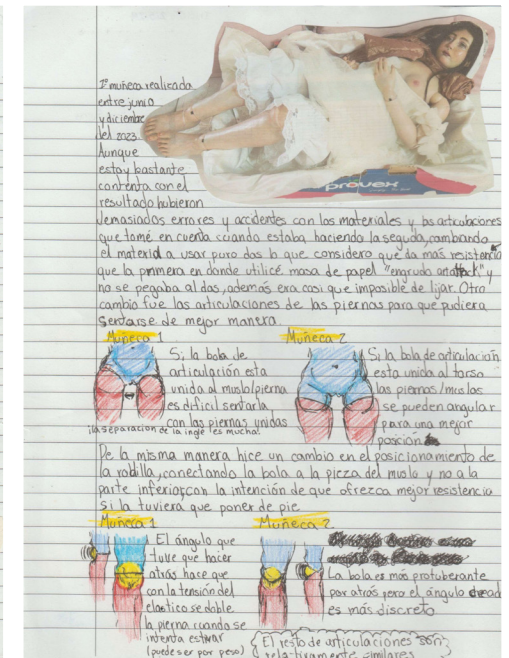 1º muñeca realizada
entre junio
y diciembre
del 2023.
Aunque
estoy bastante
contenta con el
resultado hubieron
demasiados errores y accidentes con los materiales y las articulaciones
que tomé en cuenta cuando estaba haciendo la segunda, cambiando
el material a usar puro das lo que considero que da más resistencia
que la primera en donde utilicé masa de papel "engrudo artattack" y
no se pegaba al das, además era casi que imposible de lijar. Otro
cambio fue las articulaciones de las piernas para que pudiera
sentarse de mejor manera
provex
Muñeca 1
Si la bola de
articulación esta
unida al muslo/pierna
es dificil sentarla
con las piernas unidas
¡la separación de la ingle es mucha!
Muñeca 2
Si la bola de articulación
esta unida al torso
las piernas/muslos
se pueden angular
para una mejor
posición
De la misma manera hice un cambio en el posicionamiento de
la rodilla, conectando la bola a la pieza del muslo y no a la
parte inferior, con la intención de que ofrezca mejor resistencia
si la tuviera que poner de pie
Muñeca 1
El ángulo que
tuve que hacer
atrás hace que
con la tensión del
elastico se doble
la pierna cuando se
intenta estirar
(puede ser por peso)
Muñeca 2
La bola es más protuberante
por atrás pero el ángulo
es más discreto
El resto de articulaciones son
relativamente similares